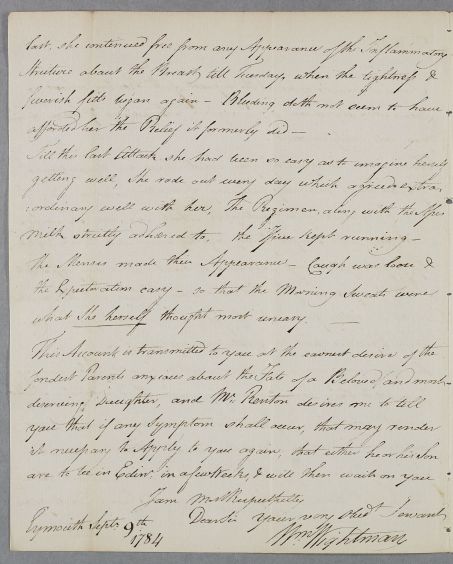 last, she continued free from any Appearance of the Inflammatory
Stricture about the Breast, till Tuesday, when the tightness &
feverish fitts began again – Bleeding doth not seem to have
afforded her the Relief it formerly did –
Till this last Attack she had been so easy as to imagine herself
getting well, She rode out every day which agreed extra
ordinary well with her, The Regimen, along with the Asses
Milk strictly adhered to, the Issue kept running –
the Menses made their Appearance – Cough was loose &
the Expectoration easy – so that the Morning Sweats were
what She herself thought most uneasy. —
This Account is transmitted to you at the earnest desire of the
fondest Parents anxious about the Fate of a Beloved, and most
deserving Daughter, and Mr. Renton desires me to tell
you that if any Symptom shall occur, that may render
it necessary to Apply to you again, that either he or his Son
are to be in Edinr. in a few Weeks, & will then wait on you
I am most Respectfully
Dear Sir your very Obedt Servant
Eymouth Septr. 9th
1784
Wm. Wightman